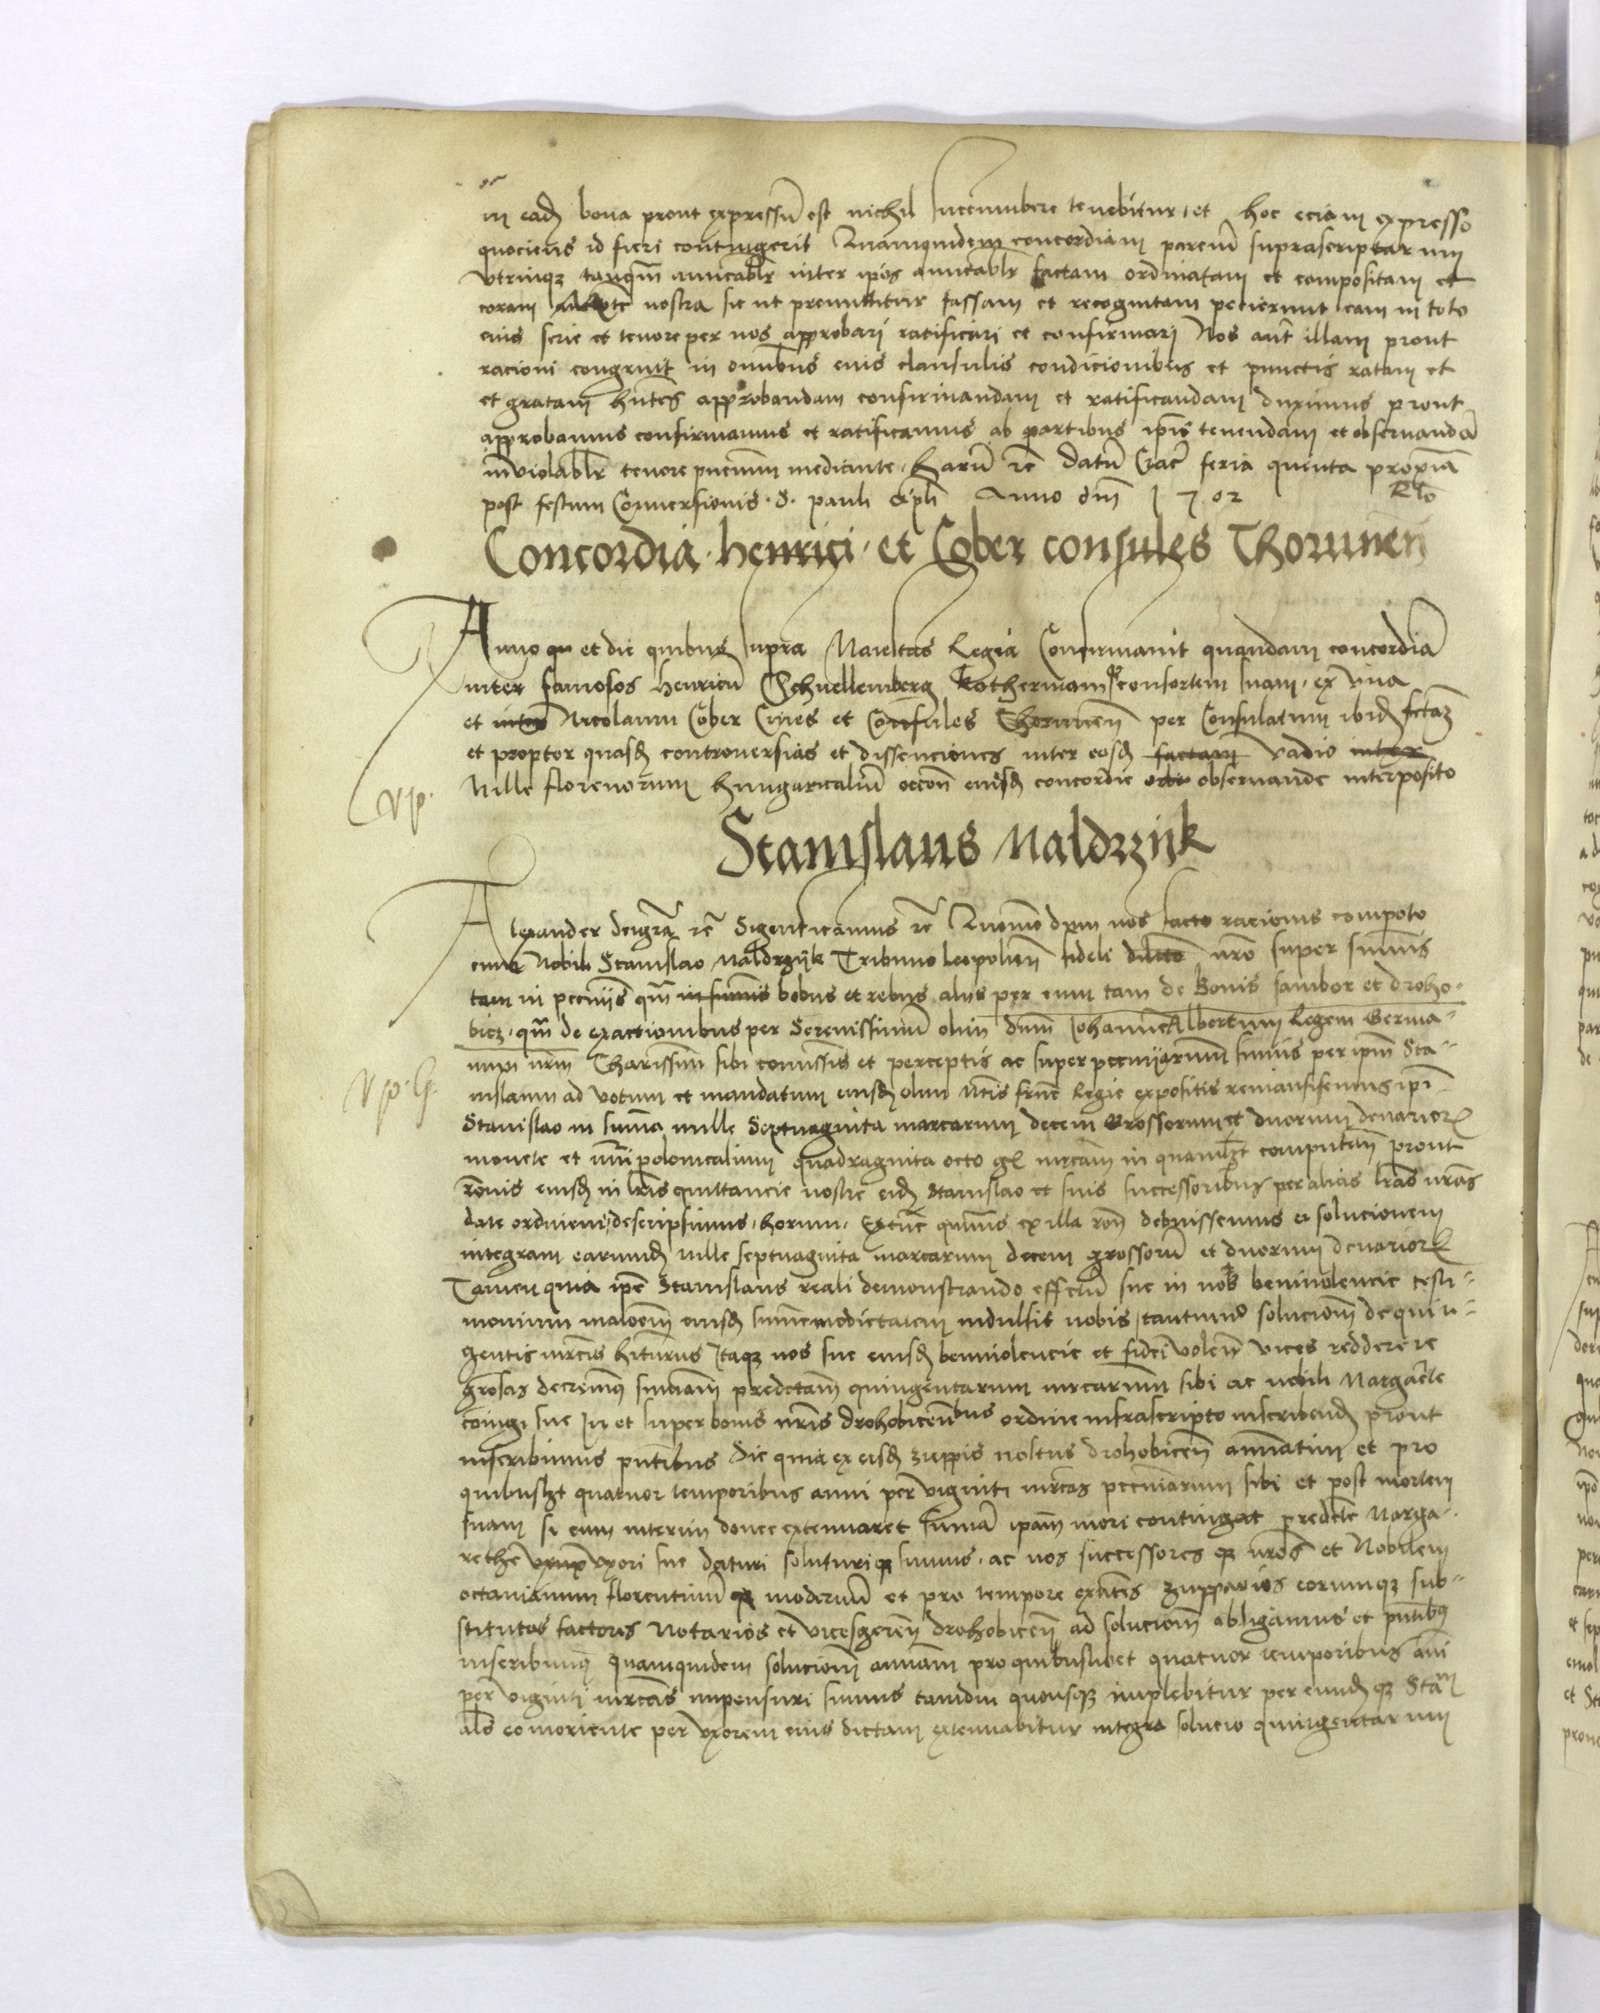 in ead bona prout expressu est nichil succumbere tenebitur et hoc eciam expresso
quociens id fieri contingerit Quamquidem concordiam parcium suprascriptarum
utrinque tanqm amicablr inter ipos amicablr factam ordinatam et compositam et
coram nostra sic ut premittitur fassam et recognitam pecierunt eam in toto
eius serie et tenore per nos approbari ratificari et confirmari Nos aut illam prout
racioni congruit in omibus eius clausulis condicionibus et punctis ratam et
et gratam hntes approbandam confirmandam et ratificandam duximus prout
approbamus confirmamus et ratificamus ab partibus ipis tenendam et observanda
inviolablr tenore pncium mediante Haru rc Datu Crac feria quinta proxia
post festum Conversionis S. pauli Anno dni 1502
Concordia henrici et Cober consules Thorunen
Anno et die quibus supra Maiestas Regia Confirmavit quandam concordia
inter famosos Henricu Schnellemberg Kathermam consortem suam ex una
et inter Nicolaum Cober Cives et Consules Thorunen per Consulatum ibid fctam
et propter quasd controversias et dissenciones inter eosd factam vadio inter
Mille florenorum hungaricaliu occon eiusd concordie observande interposito
Stanislaus Maldrzyk
Alexander deigra rc Significamus rc Quomo dum nos facto racionis compoto
cum Nobili Stanislao Maldrzijk Tribuno leopolien fideli dilecto nro super summis
tam in pecuniis qm in summis bobus et rebus aliis per eum tam de Bonis sambor et droho-
bicz qm de exactionibus per Serenissimu olim dnm Johanne Albertum Regem Germa-
num nrm Charissim sibi comissis et perceptis ac super pecuniarum sumis per ipm Sta-
nislaum ad votum et mandatum eiusd olim Mtis frne Regie expositis remansissemus ipi
Stanislao in summa mille Septuaginta marcarum decem Grossorum et duorum denarior
monete et numi polonicalium quadraginta octo gl mrcam in quamlibet computan prout
ronis eiusd in lris quittancie nostre eid Stanislao et suis successoribus per alias lras nras
date ordinem descripsimus horum Et tunc quamvis ex illa ron debuissemus ei solucionem
integram earumd mille septuaginta marcarum decem grossoru et duorum denarior
Tamen quia ipe Stanislaus reali demonstrando effectu sue in nos benivolencie testi-
monium maiorem eiusd summe medietatem indulsit nobis tantumo solucionem de quin-
gentis mrcis hiturus Itaque nos sue eiusd benivolencie et fidei volen vices reddere re
grosas decrevimus summam predctam quingentarum mrcarum sibi ac nobili Margarete
coningi sue In et super bonis nris Drohobicen ordine infrascripto inscribend prout
inscribimus pntibus Sic quia ex eisd zuppis nostris drohobicen annatim et pro
quibuslibet quatuor temporibus anni per viginti mrcas pecuniarum sibi et post mortem
suam si eum interim donec extenuaret suma ipam mori contingat predcte Marga-
rethe uxori sue daturi soluturique sumus ac nos successores que nros et Nobilem
octavianum florentinum modernu et pro tempore extntes zupparios eorumque sub-
stitutos factores Notarios et vicesgeren Drohobicen ad solucionem obligamus et pntibus
inscribimus quamquidem solucionem annuam pro quibuslibet quatuor temporibus ani
per viginti mrcas impensuri sumus tamdiu quousque implebitur per eund que Stam
als eo moriente per uxorem eius dictam extenuabitur integra solucio quingentarum